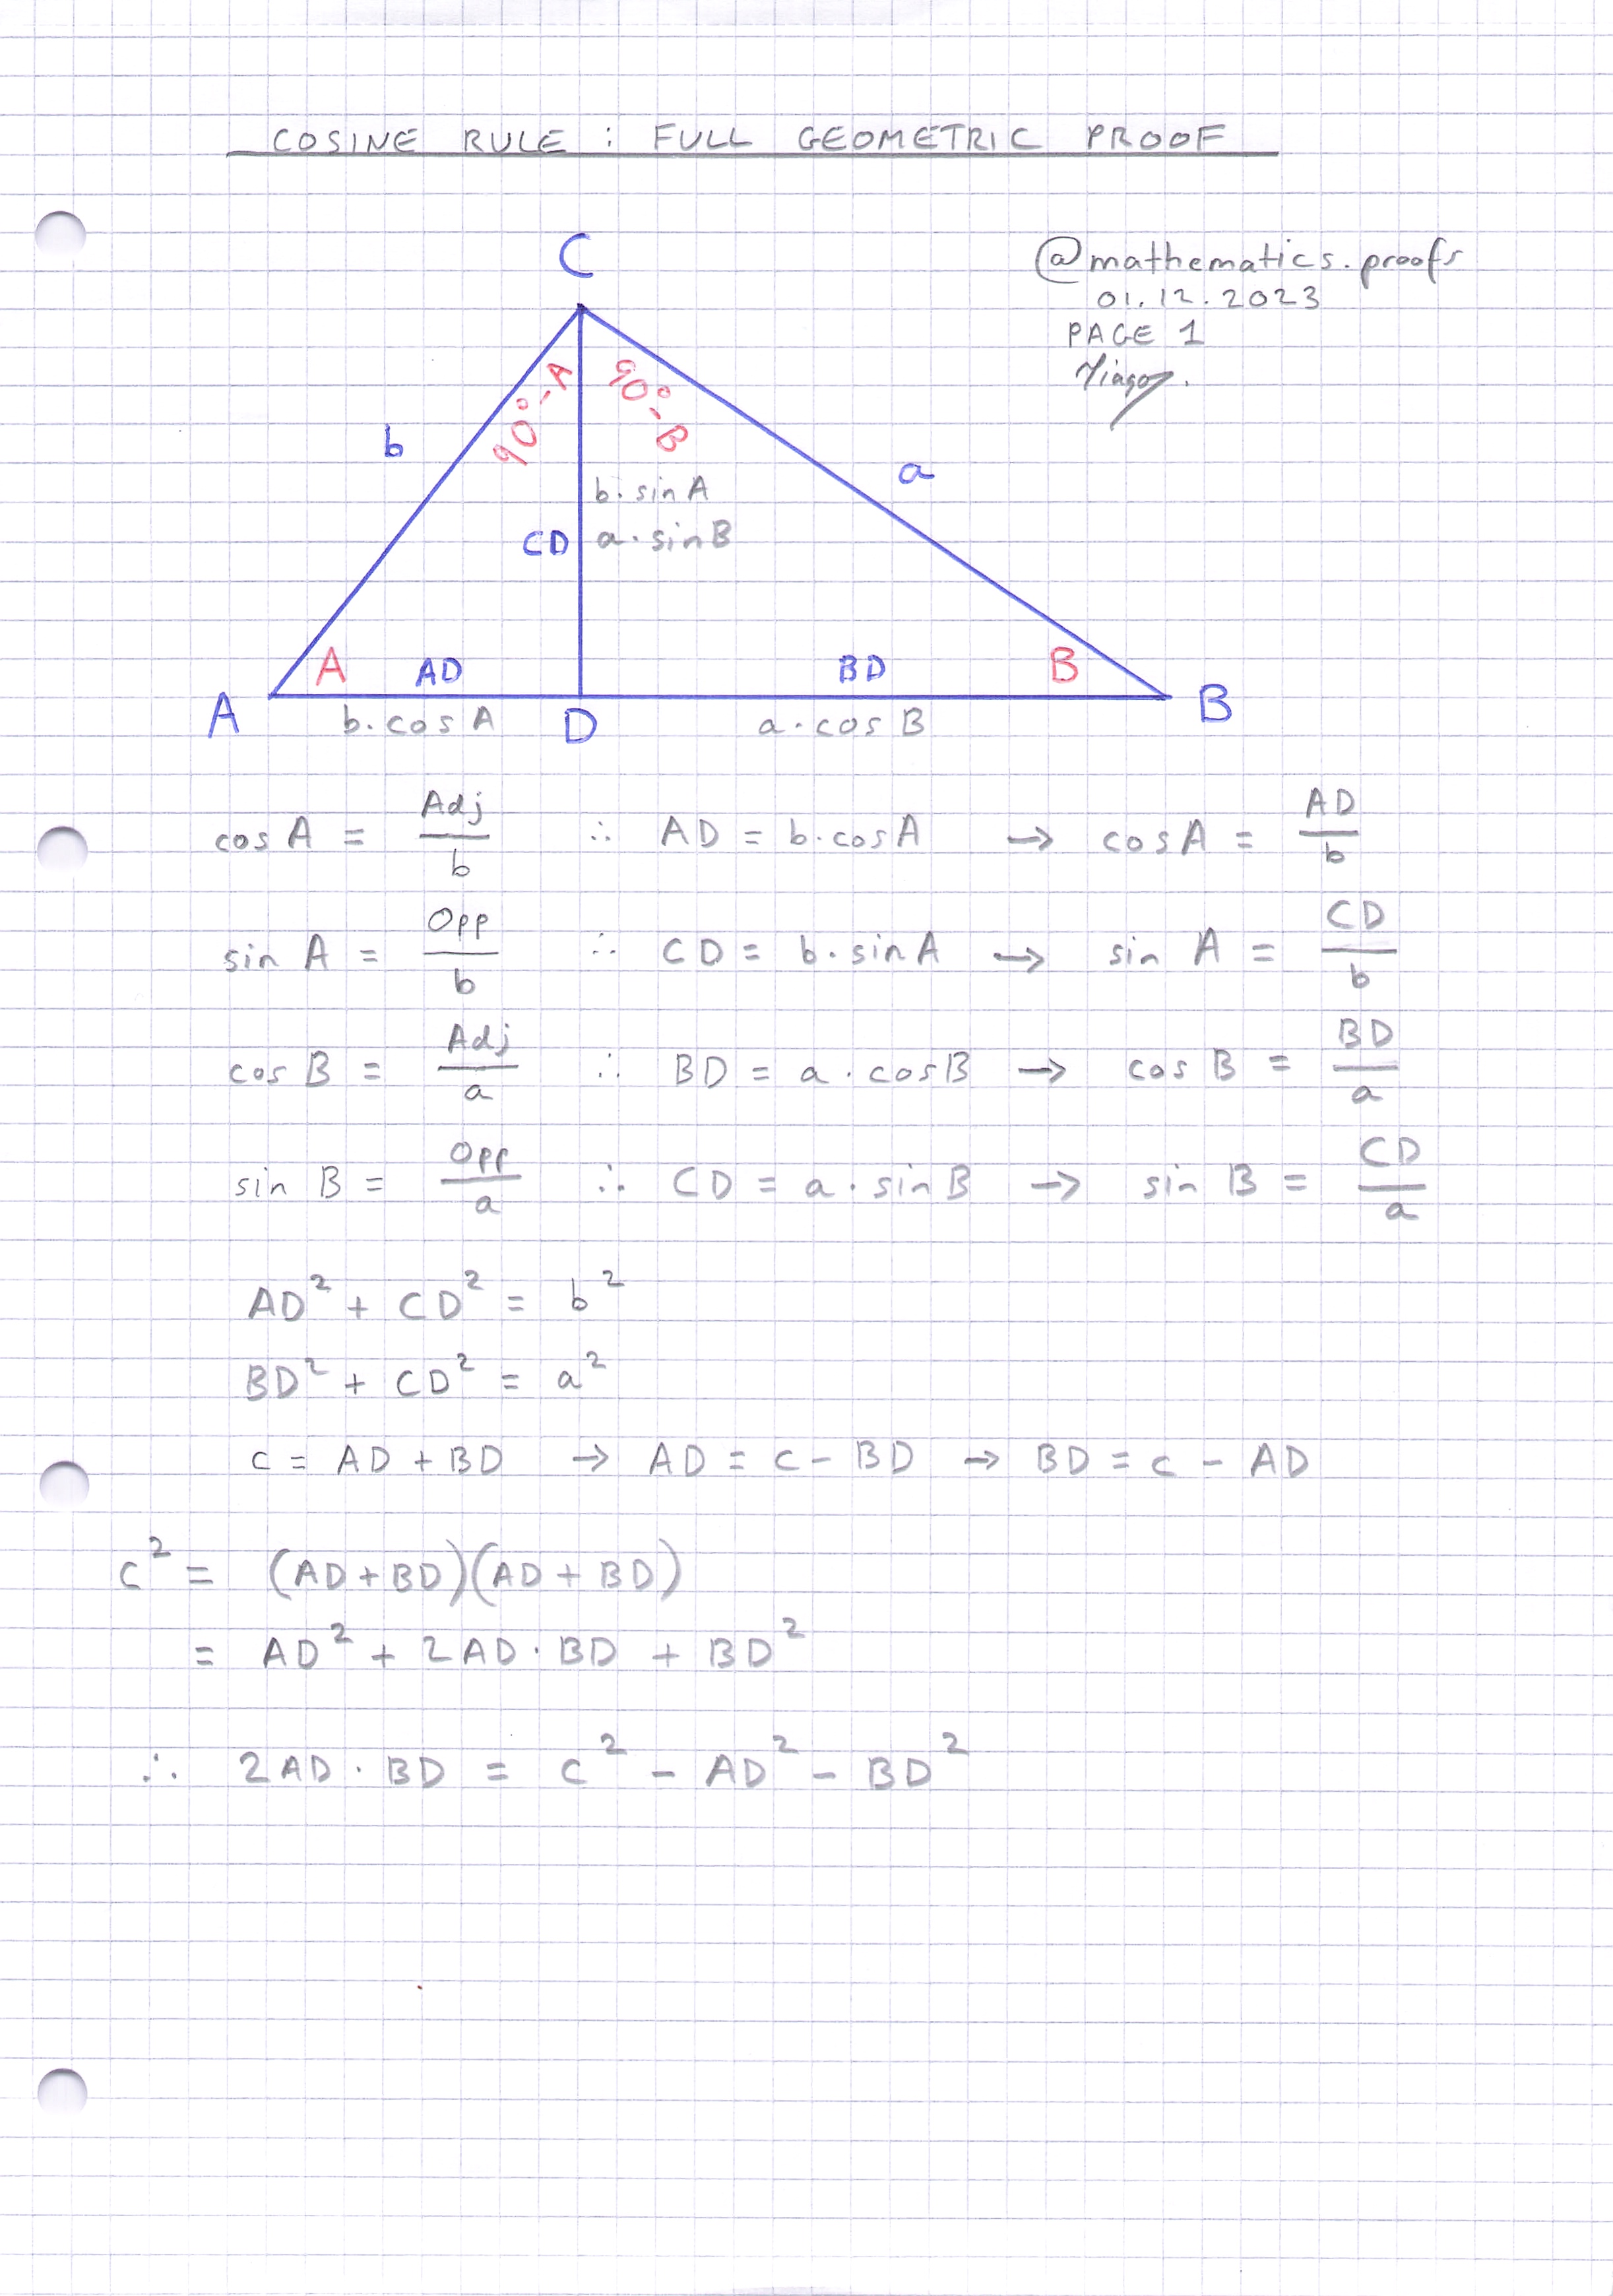 COSINE RULE : FULL GEOMETRIC PROOF
@mathematics.proofs
01.12.2023
PAGE 1
C
90°-A 90°-B
b
a
b·sinA
CD a·sinB
A AD BD B
A b·cosA D a·cosB B
cosA = Adj/b ∴ AD = b·cosA → cosA = AD/b
sin A = Opp/b ∴ CD = b·sinA → sin A = CD/b
cos B = Adj/a ∴ BD = a·cosB → cos B = BD/a
sin B = Opp/a ∴ CD = a·sinB → sin B = CD/a
AD² + CD² = b²
BD² + CD² = a²
c = AD + BD → AD = c - BD → BD = c - AD
c² = (AD + BD)(AD + BD)
= AD² + 2AD·BD + BD²
∴ 2AD·BD = c² - AD² - BD²